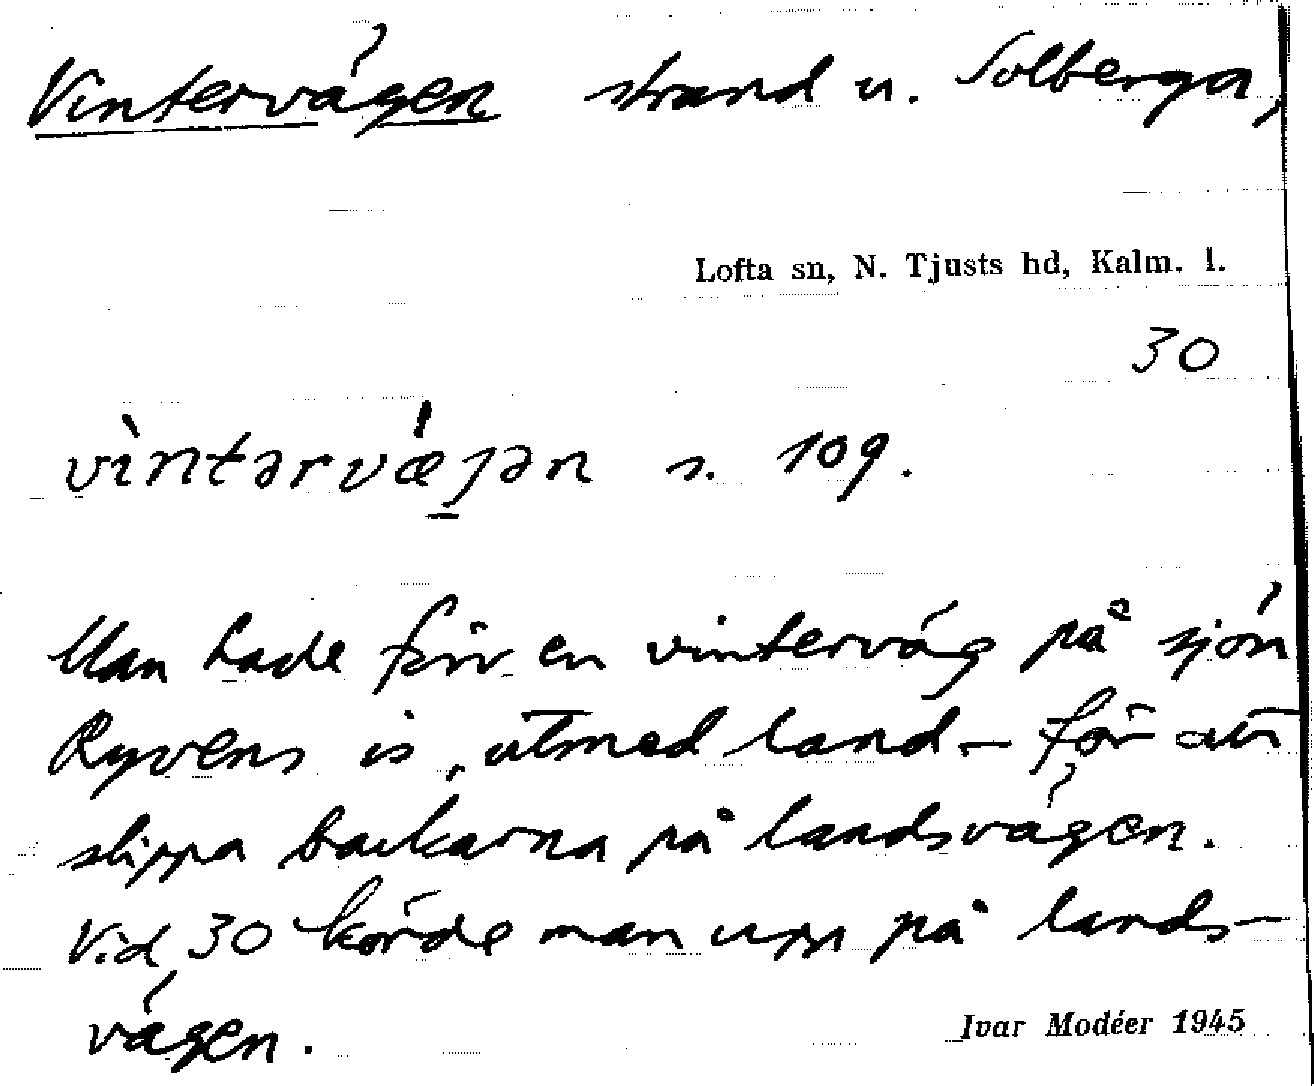 Vintervägen strand u. Solberga,
Lofta sn, N. Tjusts hd, Kalm. l.
30
vìntərvæ̀jən s. 109.
Man hade förr en vinterväg på sjön
Ryvens is, utmed land – för att
slippa backarna på landsvägen.
Vid 30 körde man upp på lands-
vägen.
Ivar Modéer 1945